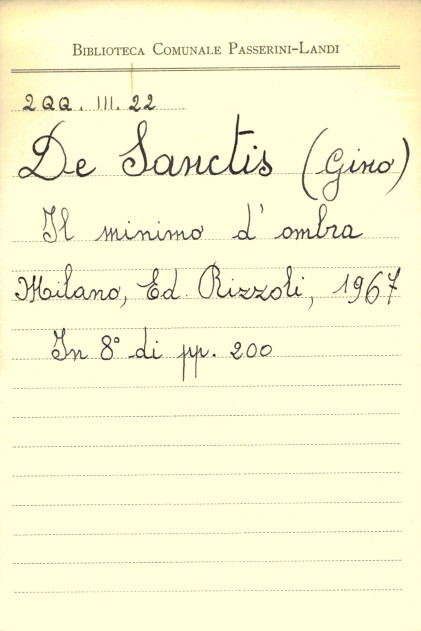 BIBLIOTECA COMUNALE PASSERINI-LANDI
2QQ. III. 22
De Sanctis (Gino)
Il minimo d'ombra
Milano, Ed. Rizzoli, 1967
In 8° di pp. 200